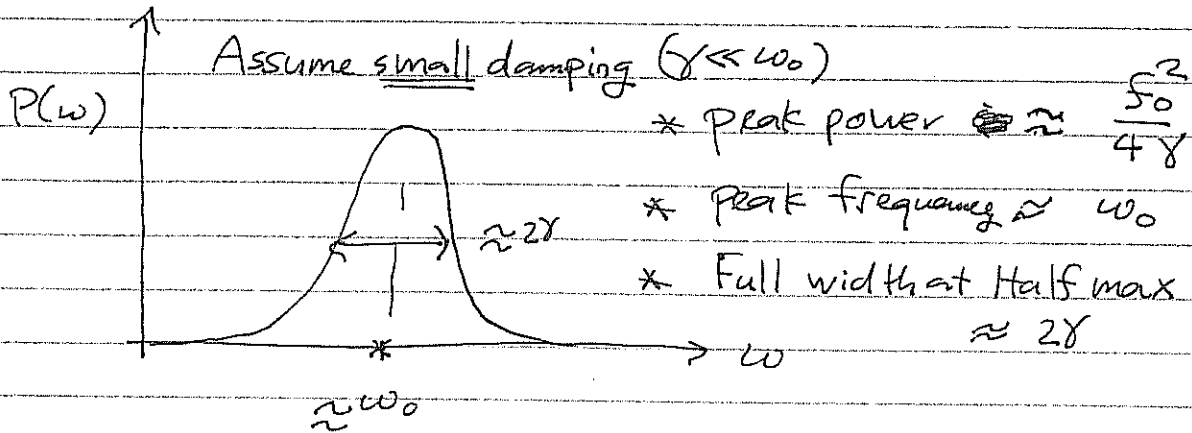 Assume small damping (γ << ω₀)
P(ω)
* peak power ≈ f₀²/4γ
* peak frequency ≈ ω₀
≈2γ
* Full width at Half max
≈ 2γ
ω
≈ω₀